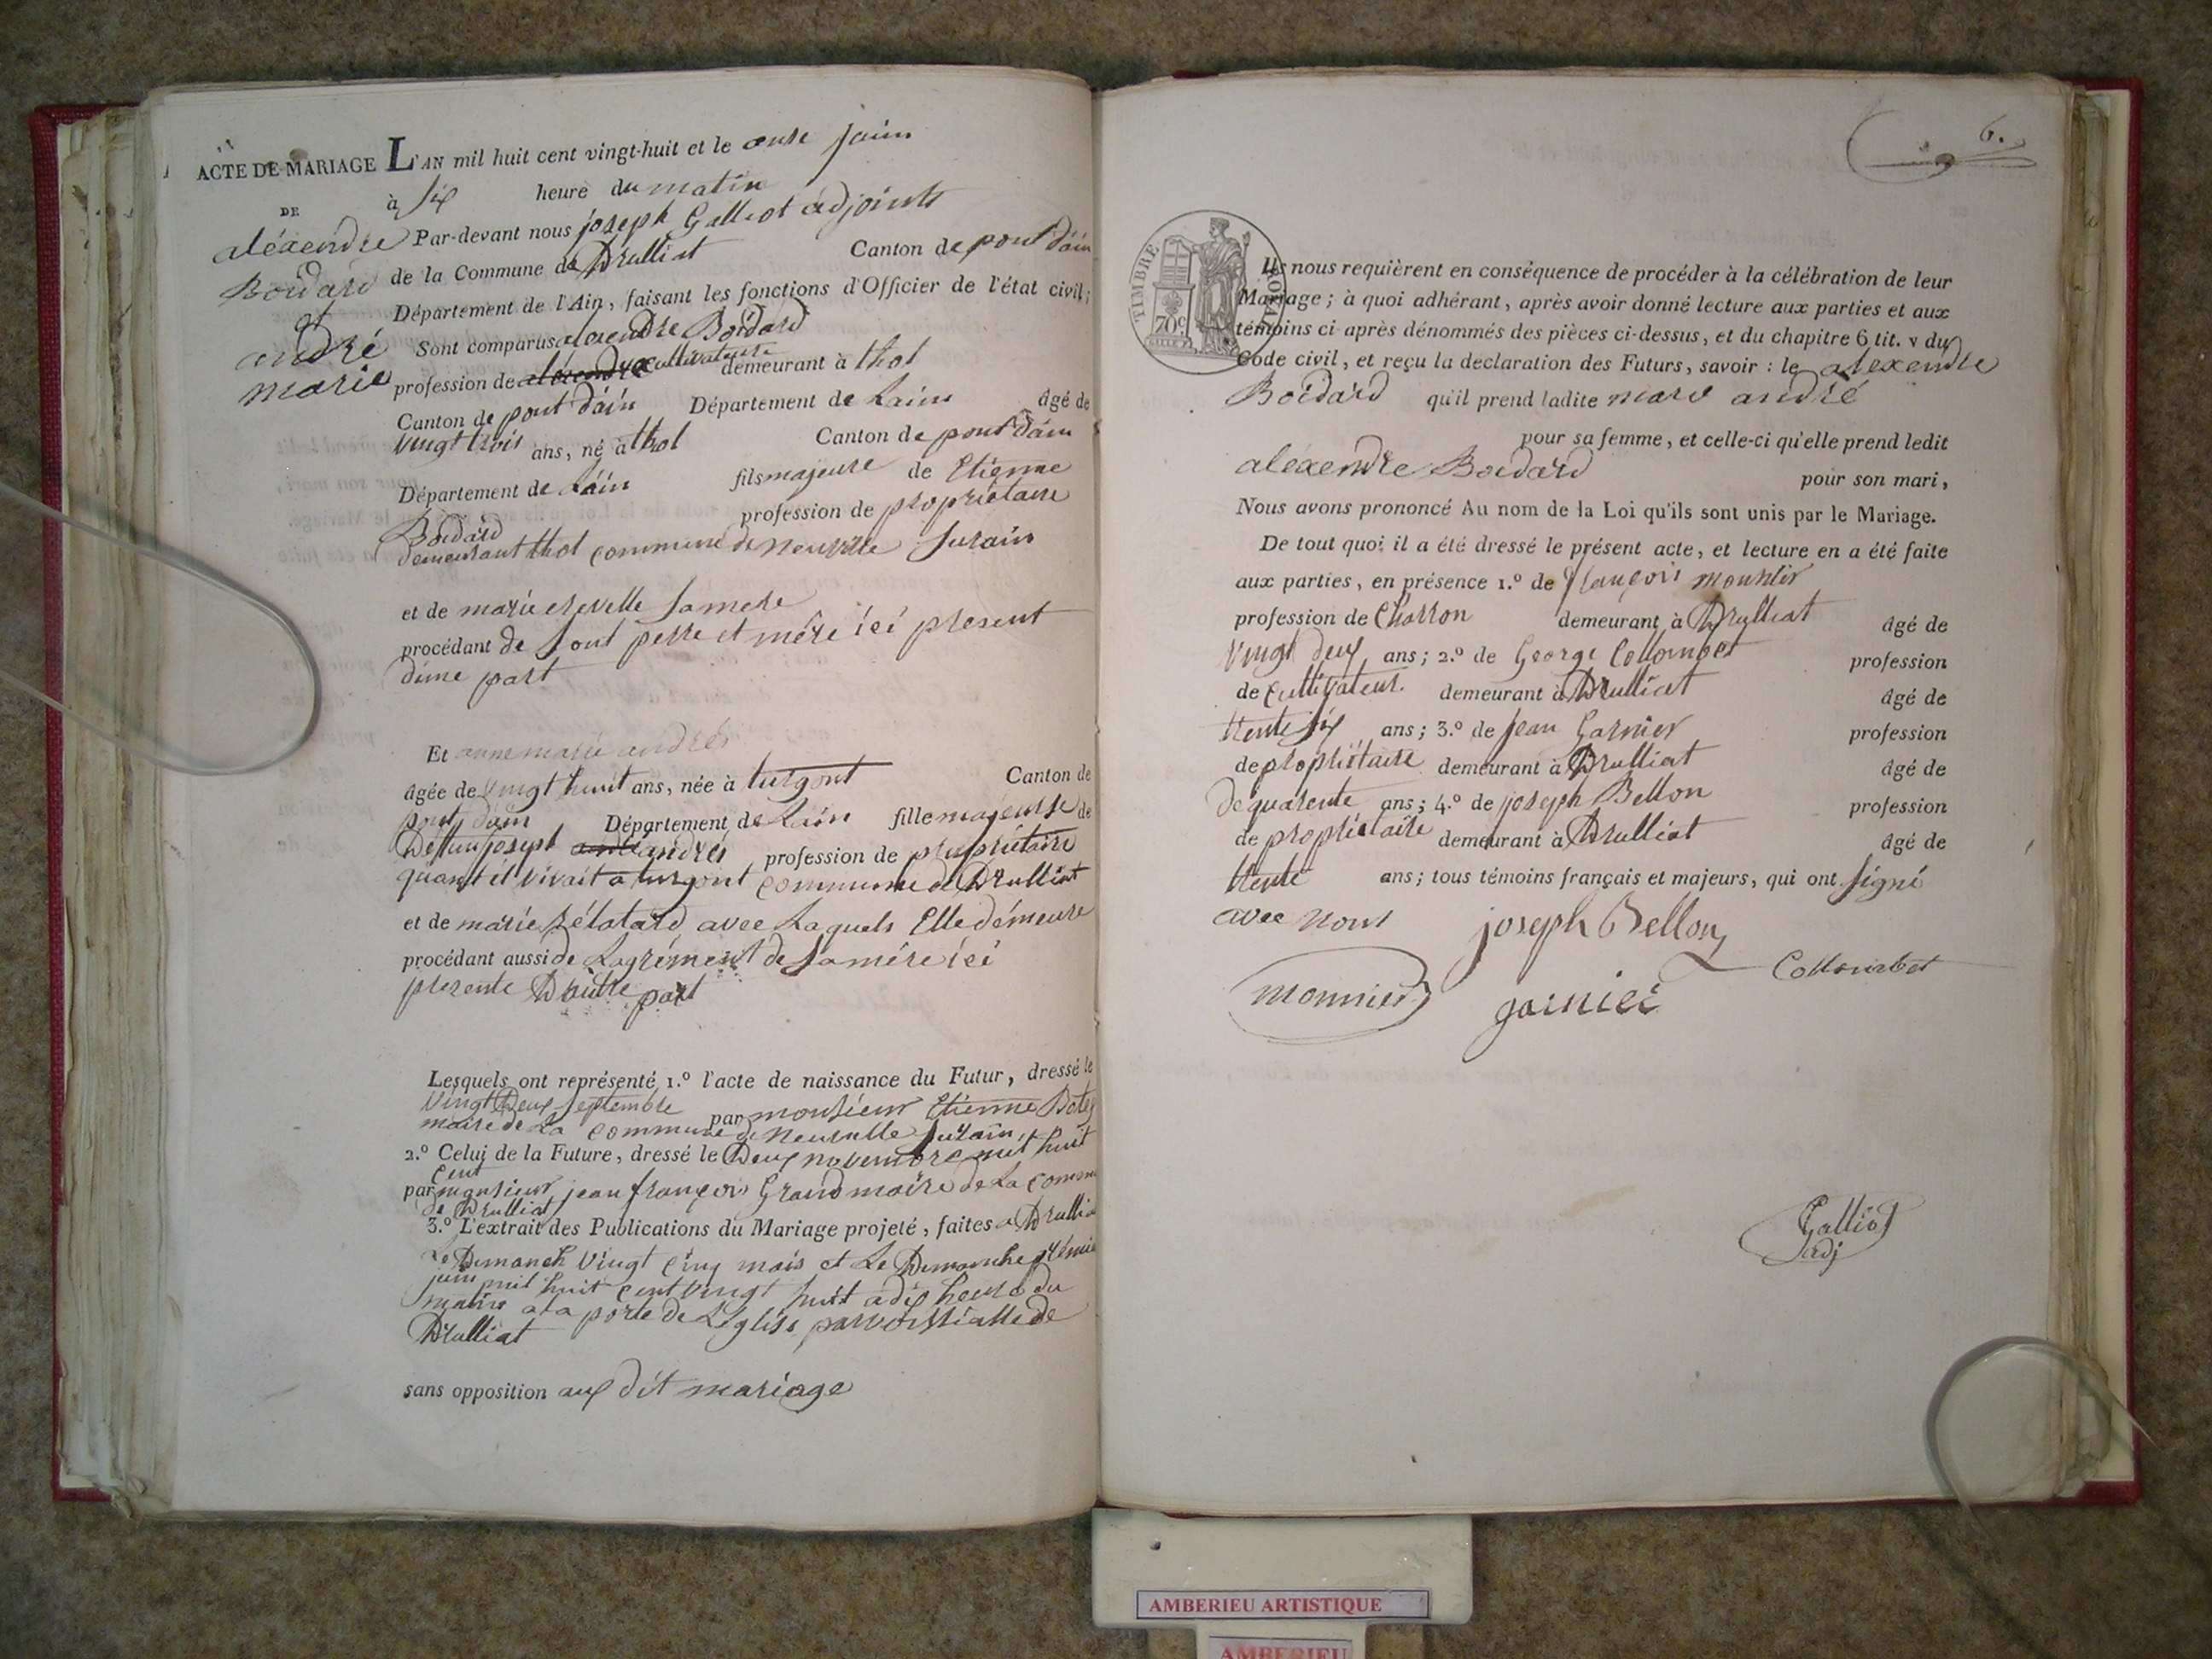 ACTE DE MARIAGE L'AN mil huit cent vingt-huit et le onse juin
DE
à six heure du matin
aléxendre
Boidard
et
andré
marie
Par-devant nous joseph Galliot adjoints
de la Commune de Drulliat Canton de pont dáin
Département de l'Ain, faisant les fonctions d'Officier de l'état civil;
Sont comparus alexendre Boidard
profession de cultivateure demeurant à thol
Canton de pont dáin Département de Lain âgé de
vingt trois ans, né à thol Canton de pont dáin
Département de Láin fils majeure de Etienne
Boidard profession de propriétaire
demeurant thol commune de neuville surain
et de marie samere
procédant de sont perre et mére ici present
dune part
Et anne marie andrés
âgée de vingt huit ans, née à turgont Canton de
pont dáin Département de Láin fille majeurse de
Deffun joseph andrés profession de propriétaire
quant il vivait a turgont commune de Drulliat
et de marie avec Laquels Elle démeure
procédant aussi de Lagrément de samére ici
presente Dautre part
Lesquels ont représenté 1.º l'acte de naissance du Futur, dressé le
vingt Deux septembre par monsieur Etienne
maire de La commune de neuville surain,
2.º Celui de la Future, dressé le Deux novembre mil huit
cent
par monsieur jean françois Grand maire de La comm
de Drulliat
3.º L'extrait des Publications du Mariage projeté, faites a Drullia
Le Dimanch vingt cinq mais et Le Dimanche
juin mil huit cent vingt huit a dix heure du
matin a La porte de Léglise parvoissialle de
Drulliat
sans opposition aux dit mariage
6.
TIMBRE ROYAL
70c
Ils nous requièrent en conséquence de procéder à la célébration de leur
Mariage; à quoi adhérant, après avoir donné lecture aux parties et aux
témoins ci-après dénommés des pièces ci-dessus, et du chapitre 6 tit. v du
Code civil, et reçu la declaration des Futurs, savoir: le alexendre
Boidard qu'il prend ladite andré
pour sa femme, et celle-ci qu'elle prend ledit
aléxendre Boidard pour son mari,
Nous avons prononcé Au nom de la Loi qu'ils sont unis par le Mariage.
De tout quoi il a été dressé le présent acte, et lecture en a été faite
aux parties, en présence 1.º de françois
profession de Charron demeurant à Drulliat âgé de
vingt deux ans; 2.º de George Collombet profession
de cultivateur. demeurant à Drulliat âgé de
trente six ans; 3.º de jean Garnier profession
de propriétaire demeurant à Drulliat âgé de
de quarente ans; 4.º de joseph Bellon profession
de propriétaire demeurant à Drulliat âgé de
trente ans; tous témoins français et majeurs, qui ont signé
avec nous joseph Bellon
Collombet
monnier garnier
Galliot
adj
AMBERIEU ARTISTIQUE
AMBERIEU